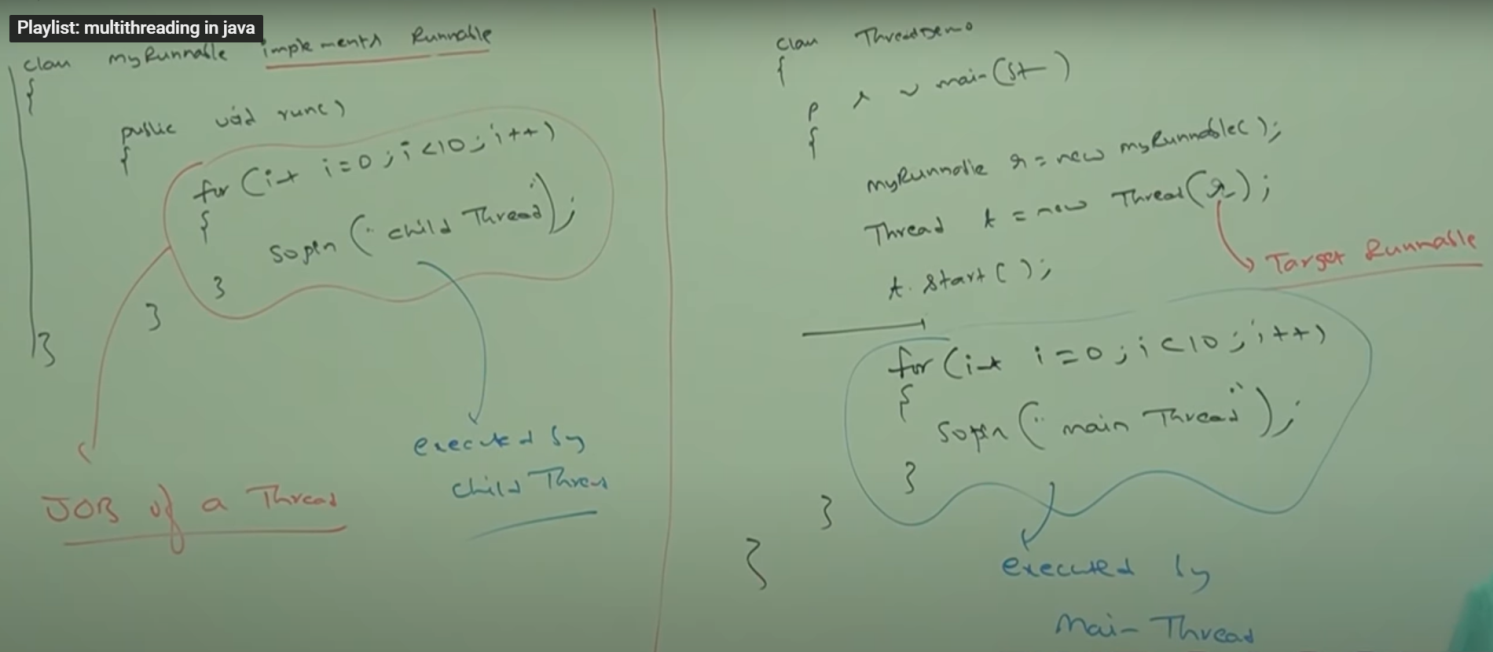 Playlist: multithreading in java
class myRunnable implements Runnable
{
public void run()
{
for (int i=0; i<10; i++)
{
sopln ("child Thread");
}
}
}
JOB of a Thread
executed by
child Thread
class ThreadDemo
{
p s v main(St—)
{
myRunnable r = new myRunnable();
Thread t = new Thread(r);
t.start();
Target Runnable
for (int i=0; i<10; i++)
{
sopln ("main Thread");
}
}
}
executed by
Main Thread